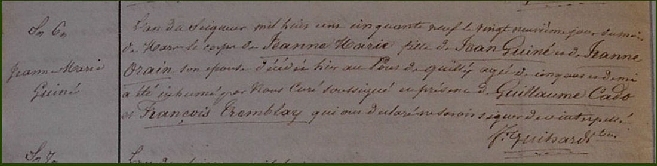 Sn 6n
Jeanne Marie
Guiné
L'an du Seigneur mil huit cent cinquante neuf le vingt neuvième jour du mois
de Mars le corps de Jeanne Marie fille de Jean Guiné et de Jeanne
Orain son épouse décédée hier au de Quilly agé de cinq ans et demi
a été inhumé par Nous Curé soussigné en présence de Guillaume Cado
et François Tremblay qui ont déclaré ne savoir signer de ce interpellé
Guihard
Sn 7n